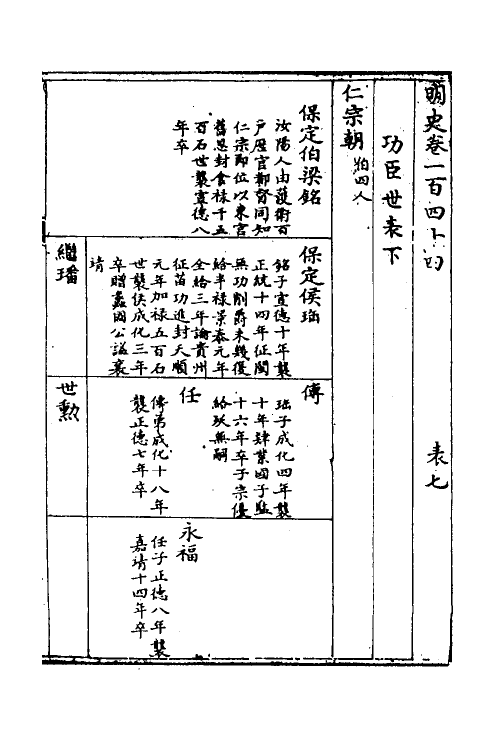 明史卷一百四十四
表七
功臣世表下
仁宗朝
伯四人
保定伯梁銘
汝陽人由護衛百
戶歷官都督同知
仁宗即位以東宮
舊恩封食祿千五
百石世襲宣德八
年卒
保定侯珤
銘子宣德十年襲
正統十四年征閩
無功削爵未幾復
給半祿景泰元年
全給三年論貴州
征苗功進封天順
元年加祿五百石
世襲侯成化三年
卒贈蠡國公諡襄
靖
傅
珤子成化四年襲
十年肄業國子監
十六年卒子宗優
給殀無嗣
任
傅弟成化十八年
襲正德七年卒
永福
任子正德八年襲
嘉靖十四年卒
繼璠
世勲